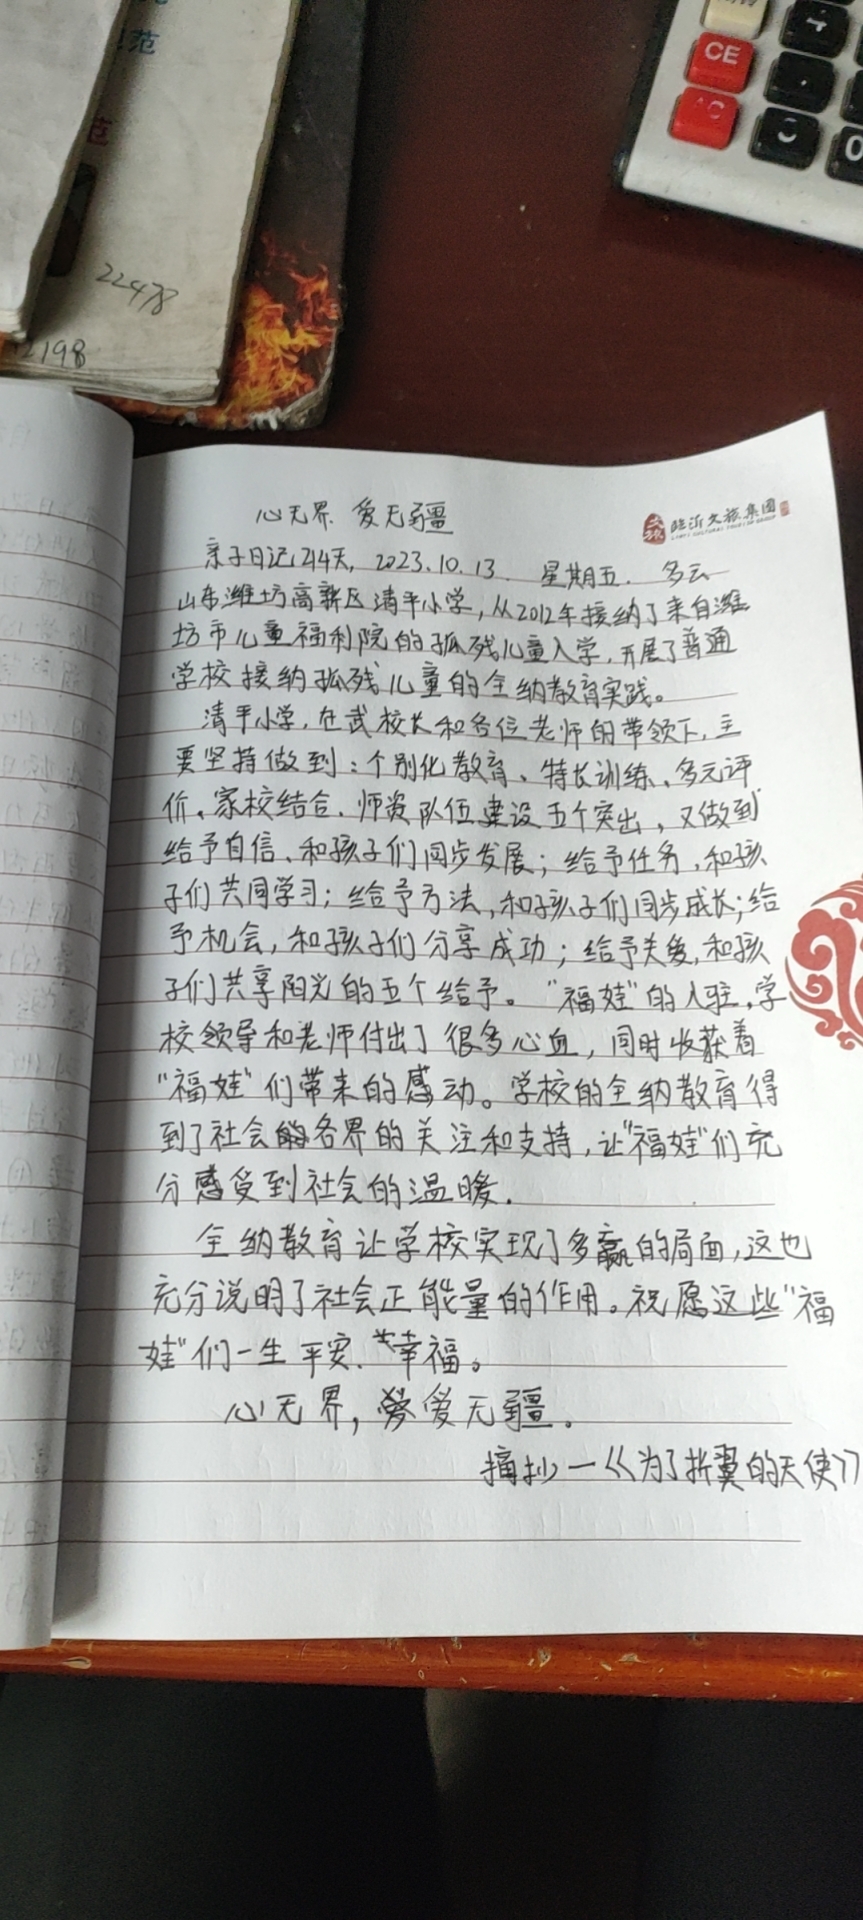 范
范
22478
2198
CE
AC
0
心无界 爱无疆
临沂文旅集团
亲子日记244天, 2023.10.13. 星期五. 多云
山东潍坊高新区清平小学,从2012年接纳了来自潍
坊市儿童福利院的孤残儿童入学,开展了普通
学校接纳孤残儿童的全纳教育实践。
清平小学,在武校长和各位老师的带领下,主
要坚持做到:个别化教育、特长训练、多元评
价、家校结合、师资队伍建设五个突出,又做到
给予自信、和孩子们同步发展;给予任务,和孩
子们共同学习;给予方法,和孩子们同步成长;给
予机会,和孩子们分享成功;给予关爱,和孩
子们共享阳光的五个给予。“福娃”的入驻,学
校领导和老师付出了很多心血,同时收获着
“福娃”们带来的感动。学校的全纳教育得
到了社会各界的关注和支持,让“福娃”们充
分感受到社会的温暖.
全纳教育让学校实现了多赢的局面,这也
充分说明了社会正能量的作用。祝愿这些“福
娃”们一生平安、幸福。
心无界,爱无疆.
摘抄一《为了折翼的天使》